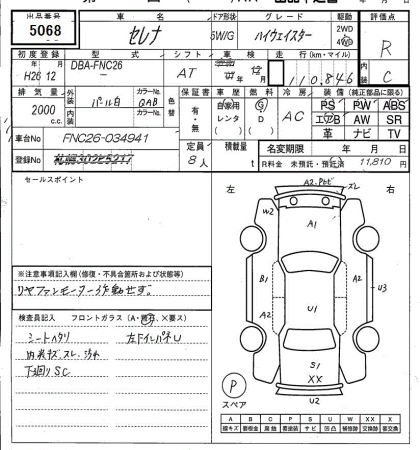 出品番号 車名 ドア形状 グレード 駆動 評価点
5068 セレナ 5W/G ハイウェイスター 2WD 4WD R
初度登録 型式 シフト 車検 走行(km・マイル) 内装
H26 12 DBA-FNC26 AT 12月 110,846 C
排気量 外装 カラーNo. 色替 保証書 車歴 燃料 冷房 装備(純正部品に限る)
2000 cc パール白 QAB 有・無 自家用 レンタ G D AC PS PW SR
内装 カラーNo. エアB AW SR
革 ナビ TV
車台No FNC26-034941 定員 積載量 名変期限 年 月 日
登録No. 札幌302 8人 t R料金 未預託・預託済 11,810円
セールスポイント
左 右
A2.P
ズレ
W2
A1
B1 A2 U3
A2 U1
S1
XX
U2
P
スペア
※注意事項記入欄(修復・不具合箇所および状態等)
リヤファンモーター作動せず。
検査員記入 フロントガラス(A・飛石、×要ス)
シートヘタリ 左Fインパネ U
内装キズ.スレ.汚れ
下廻り SC
A B C P S U W X XX
線キズ 要板金 腐食 要塗装 サビ 凹凸 補修跡 要交換 交換済